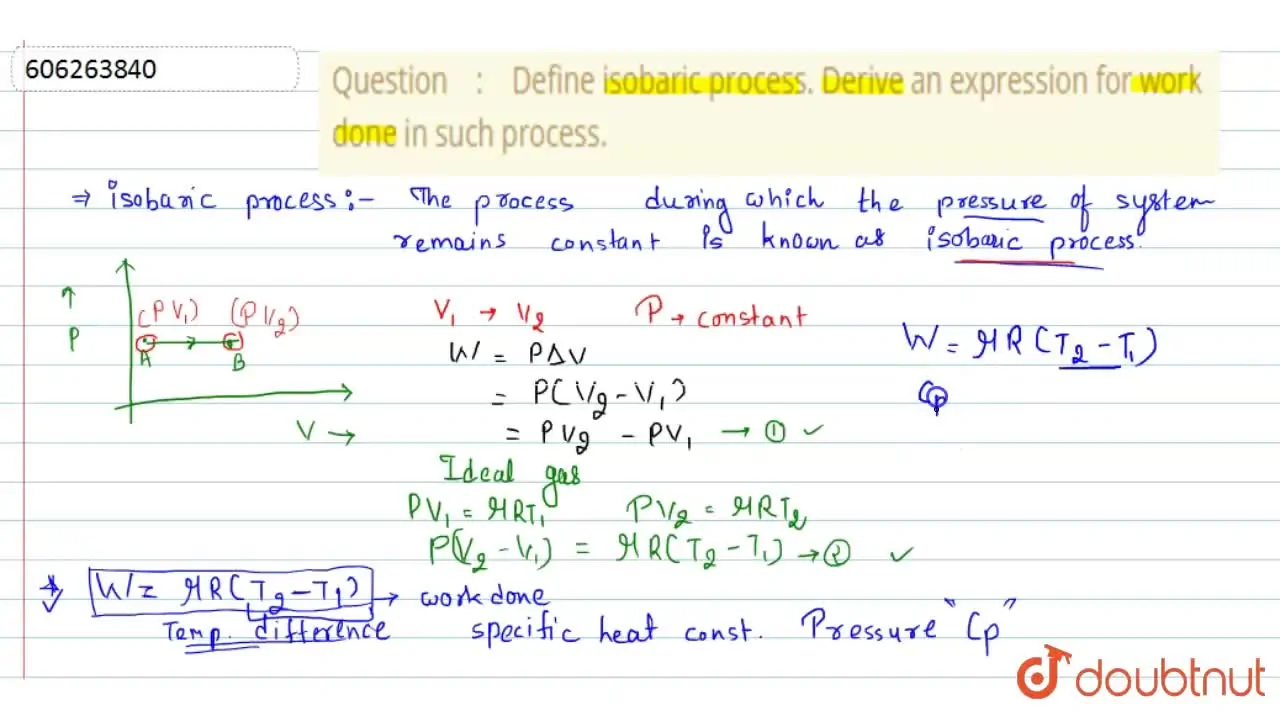 606263840
Question : Define isobaric process. Derive an expression for work
done in such process.
⇒ isobaric process:- The process during which the pressure of system
remains constant is known as isobaric process.
↑
P
(PV₁) (PV₂)
A B
V →
V₁ → V₂ P → constant
W = PΔV
= P(V₂-V₁)
= PV₂ - PV₁ → ① ✓
W = μR(T₂-T₁)
Cp
Ideal gas
PV₁ = μRT₁ PV₂ = μRT₂
P(V₂-V₁) = μR(T₂-T₁) → ② ✓
W = μR(T₂-T₁) → work done
Temp. difference specific heat const. Pressure "Cp"
doubtnut